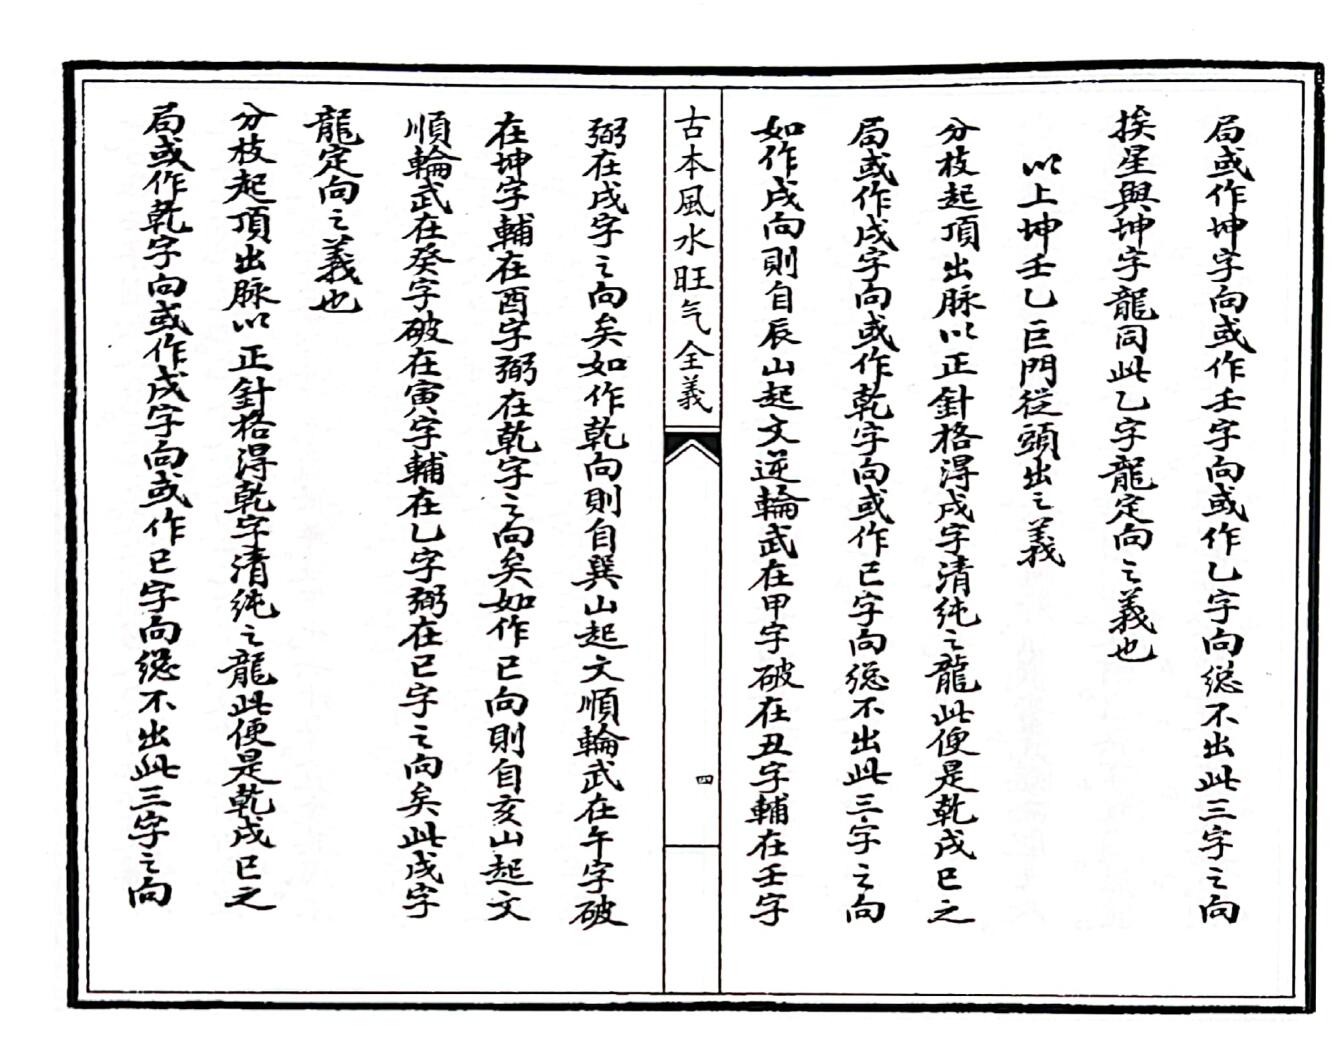 局或作坤字向或作壬字向或作乙字向總不出此三字之向
挨星與坤字龍同此乙字龍定向之義也
以上坤壬乙巨門從頭出之義
分枝起頂出脉以正針格得戌字清純之龍此便是乾戌巳之
局或作戌字向或作乾字向或作巳字向總不出此三字之向
如作戌向則自辰山起文逆輪武在甲字破在丑字輔在壬字
古本風水旺气全義
四
弼在戌字之向矣如作乾向則自巽山起文順輪武在午字破
在坤字輔在酉字弼在乾字之向矣如作巳向則自亥山起文
順輪武在癸字破在寅字輔在乙字弼在巳字之向矣此戌字
龍定向之義也
分枝起頂出脉以正針格得乾字清純之龍此便是乾戌巳之
局或作乾字向或作戌字向或作巳字向總不出此三字之向